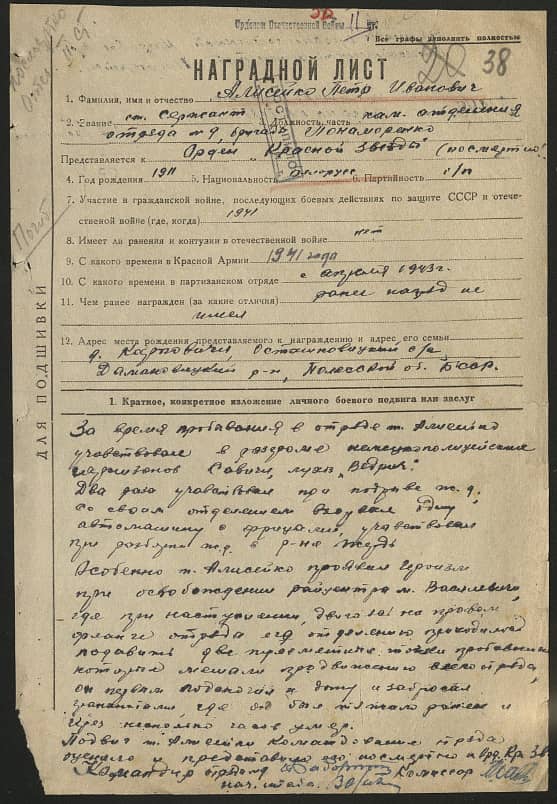 Орденом Отечественной Войны II ст.
Все графы заполнять полностью
20 38
НАГРАДНОЙ ЛИСТ
1. Фамилия, имя и отчество Алисейко Петр Иванович
2. Звание ст. сержант Должность, часть ком. отделения
отряда бригады Пономаренко
Представляется к Орден „Красной Звезды" (посмертно)
4. Год рождения 1911 5. Национальность белорус 6. Партийность б/п
7. Участие в гражданской войне, последующих боевых действиях по защите СССР и отече-
ственной войне (где, когда) 1941
8. Имеет ли ранения и контузии в отечественной войне нет
9. С какого времени в Красной Армии 1941 года
10. С какого времени в партизанском отряде с апреля 1943 г.
11. Чем ранее награжден (за какие отличия) ранее наград не
имел
12. Адрес места рождения представляемого к награждению и адрес его семьи
д. Карповичи, с/с
Домановицкий р-н, Полесской об. БССР.
ДЛЯ ПОДШИВКИ
Погиб
1. Краткое, конкретное изложение личного боевого подвига или заслуг
За время пребывания в отряде т. Алисейко
участвовал в разгроме немецко-полицейских
гарнизонов Савичи,
Два раза участвовал при подрыве ж.д.
со своим отделением взорвал одну
автомашину с фрицами, участвовал
при ж.д. в р-не
Особенно т. Алисейко проявил героизм
при освобождении райцентра м. Василевичи,
где при наступлении, двигаясь на правом
фланге отряда его отделению приходилось
подавить две пулеметные точки противника
которые мешали продвижению всего отряда,
он первым подбежал к дзоту и забросал
гранатами, где он был тяжело ранен и
через несколько часов умер.
Подвиг т. Алисейко командование отряда
оценило и представило его посмертно к Орд. Кр. Зв.
Командир отряда Комиссар
нач. штаба